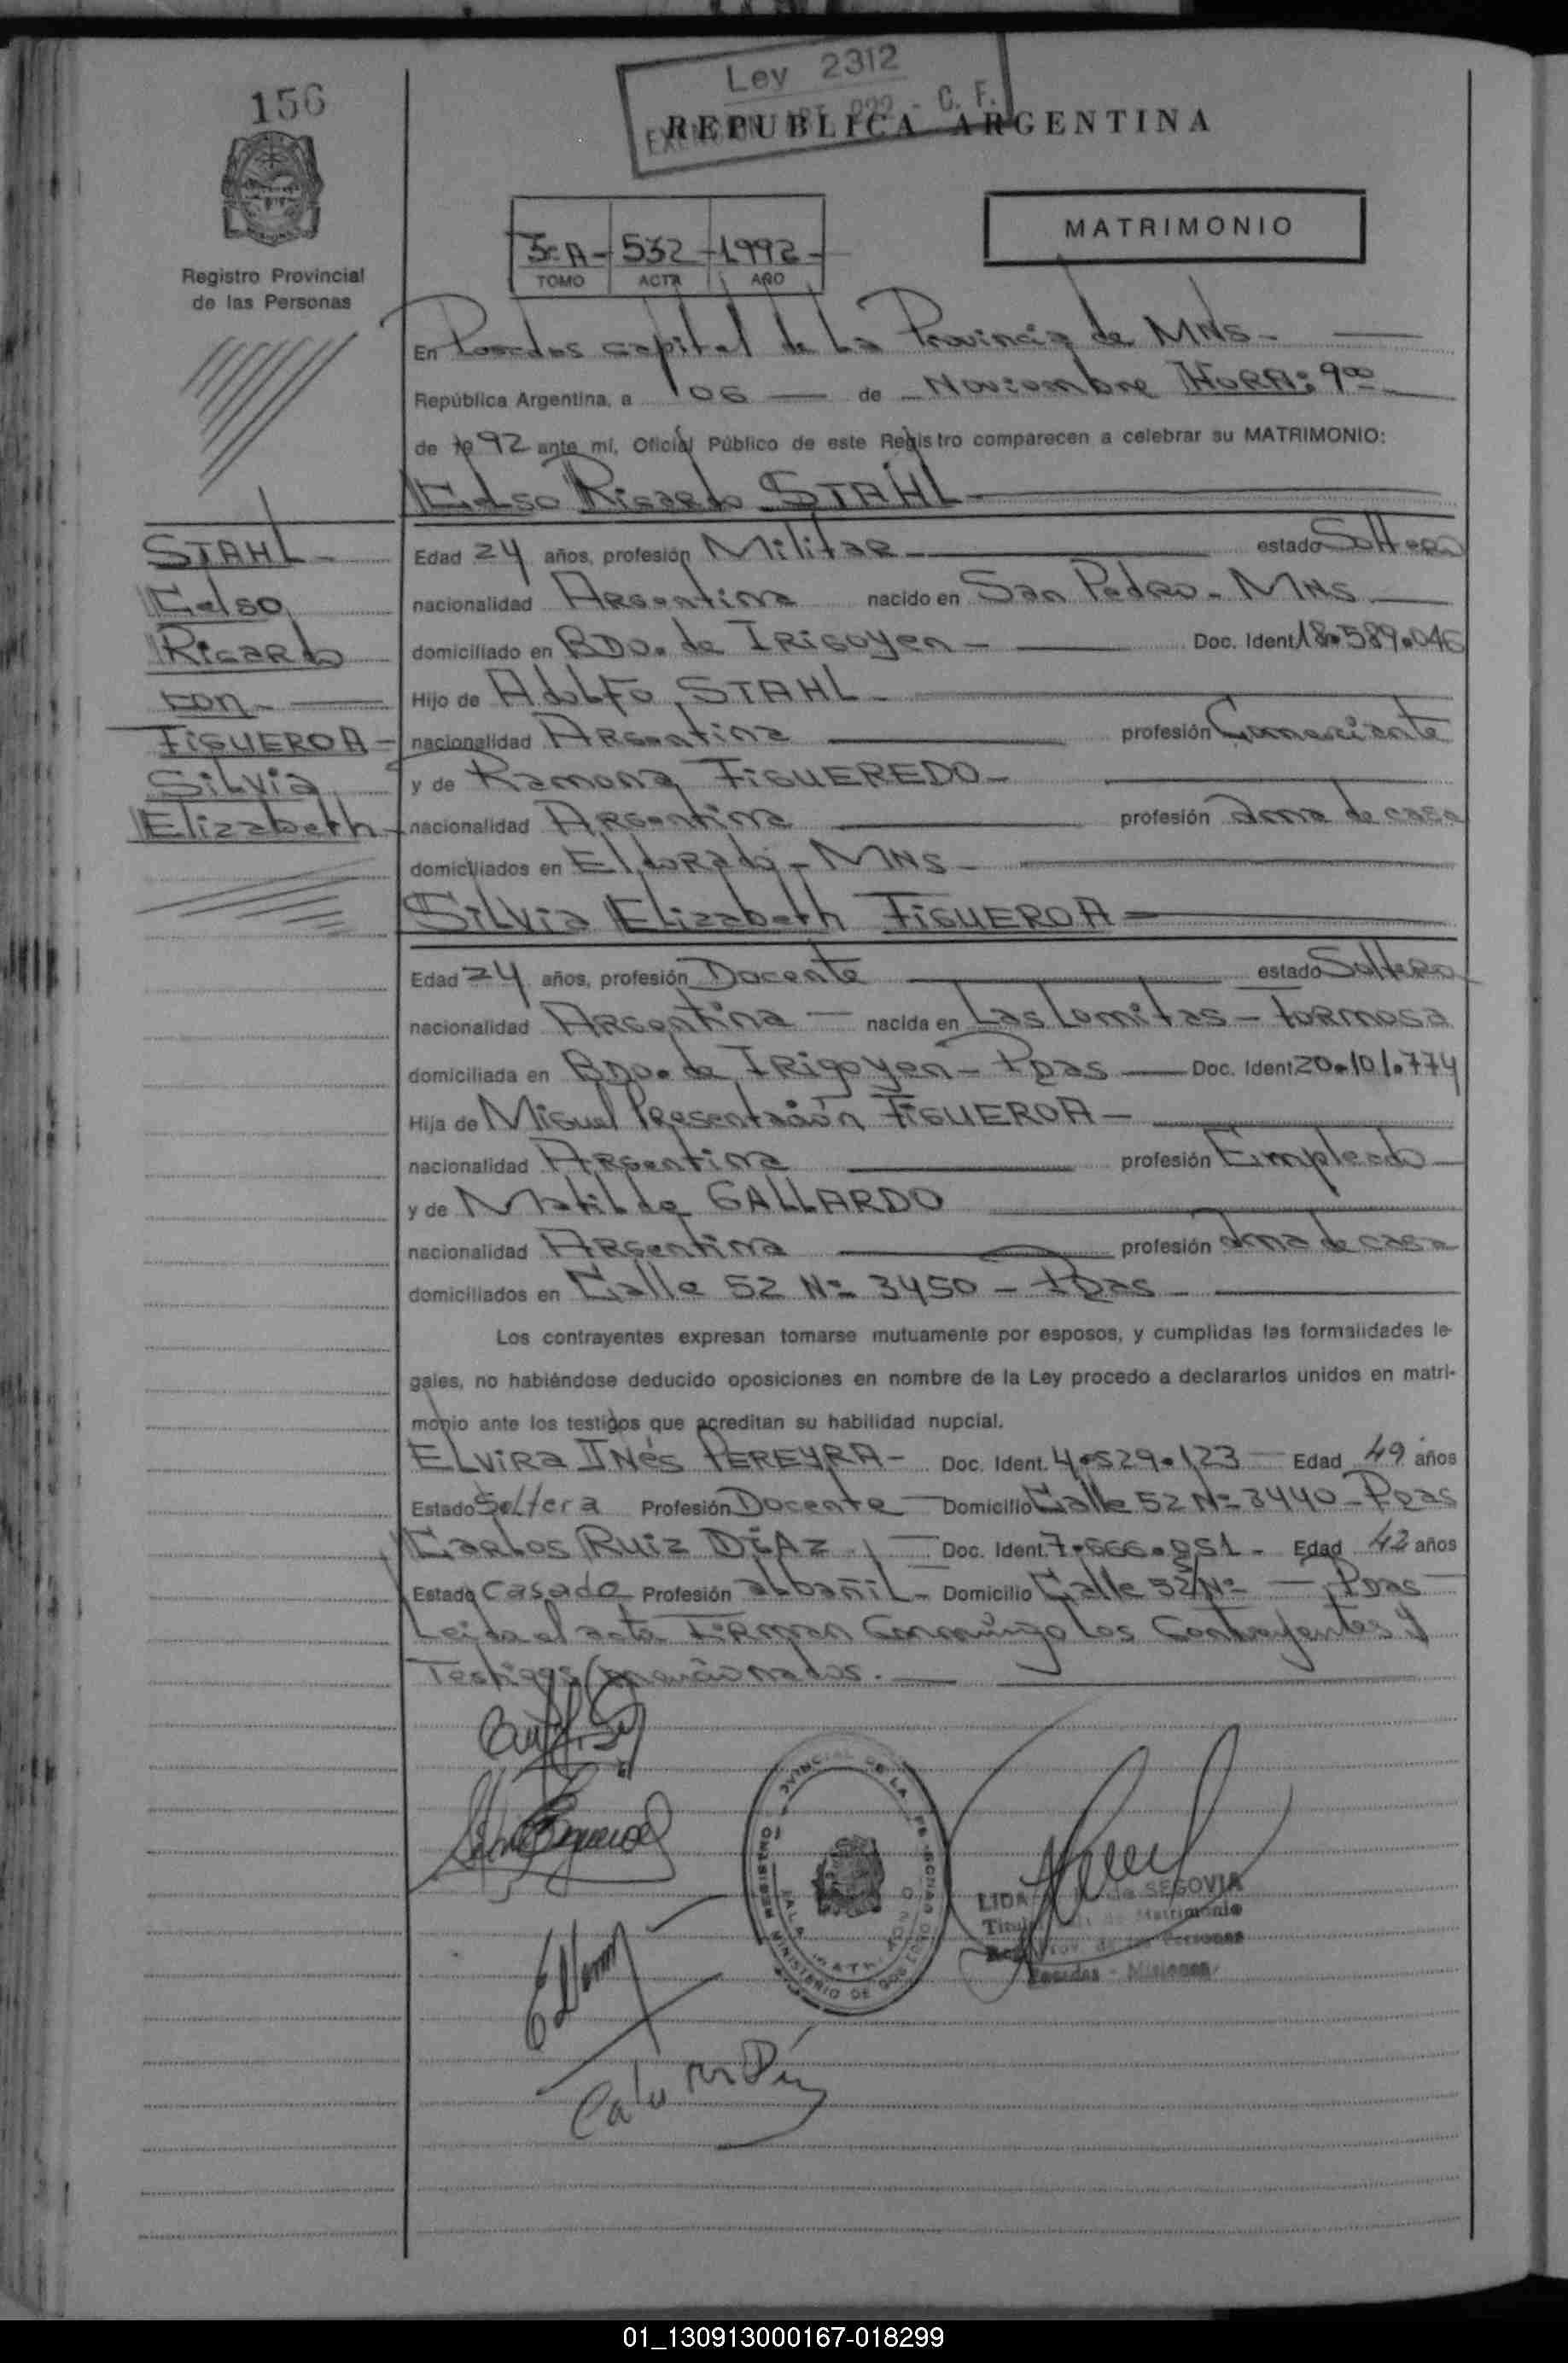 156
Ley 2312
C. F.
REPUBLICA ARGENTINA
Registro Provincial
de las Personas
3º A - 532 - 1992 -
TOMO ACTA AÑO
MATRIMONIO
En Posadas capital de La Provincia de MNS -
República Argentina, a 06 de Noviembre HORA: 9 00
de 19 92 ante mí, Oficial Público de este Registro comparecen a celebrar su MATRIMONIO:
Celso Ricardo STAHL -
STAHL -
Celso
Ricardo
con -
FIGUEROA -
Silvia
Elizabeth -
Edad 24 años, profesión Militar - estado Soltero
nacionalidad Argentina nacido en San Pedro - MNS
domiciliado en BDO. de IRIGOYEN - Doc. Ident 18.589.046
Hijo de Adolfo STAHL -
nacionalidad Argentina profesión Comerciante
y de Ramona FIGUEREDO -
nacionalidad Argentina profesión Ama de casa
domiciliados en Eldorado - MNS -
Silvia Elizabeth FIGUEROA -
Edad 24 años, profesión Docente estado Soltera
nacionalidad Argentina - nacida en Las Lomitas - Formosa
domiciliada en BDO. de IRigoyen - Pdas Doc. Ident 20.101.774
Hija de Miguel Presentación FIGUEROA -
nacionalidad Argentina profesión Empleado
y de Matilde GALLARDO
nacionalidad Argentina profesión Ama de casa
domiciliados en Calle 52 Nº 3450 - Pdas -
Los contrayentes expresan tomarse mutuamente por esposos, y cumplidas las formalidades le-
gales, no habiéndose deducido oposiciones en nombre de la Ley procedo a declararlos unidos en matri-
monio ante los testigos que acreditan su habilidad nupcial.
Elvira Inés PEREYRA - Doc. Ident. 4.529.123 Edad 49 años
Estado Soltera Profesión Docente Domicilio Calle 52 Nº 3440 - Pdas
Carlos Ruiz DÍAZ Doc. Ident. 7.666.951 - Edad 42 años
Estado Casado Profesión albañil - Domicilio Calle 52 S/Nº - Pdas
Leída el acta Firman Conmigo los Contrayentes y
Testigos mencionados.
LIDA de SEGOVIA
Matrimonio
Prov. de las Personas
Posadas - Misiones
01_130913000167-018299